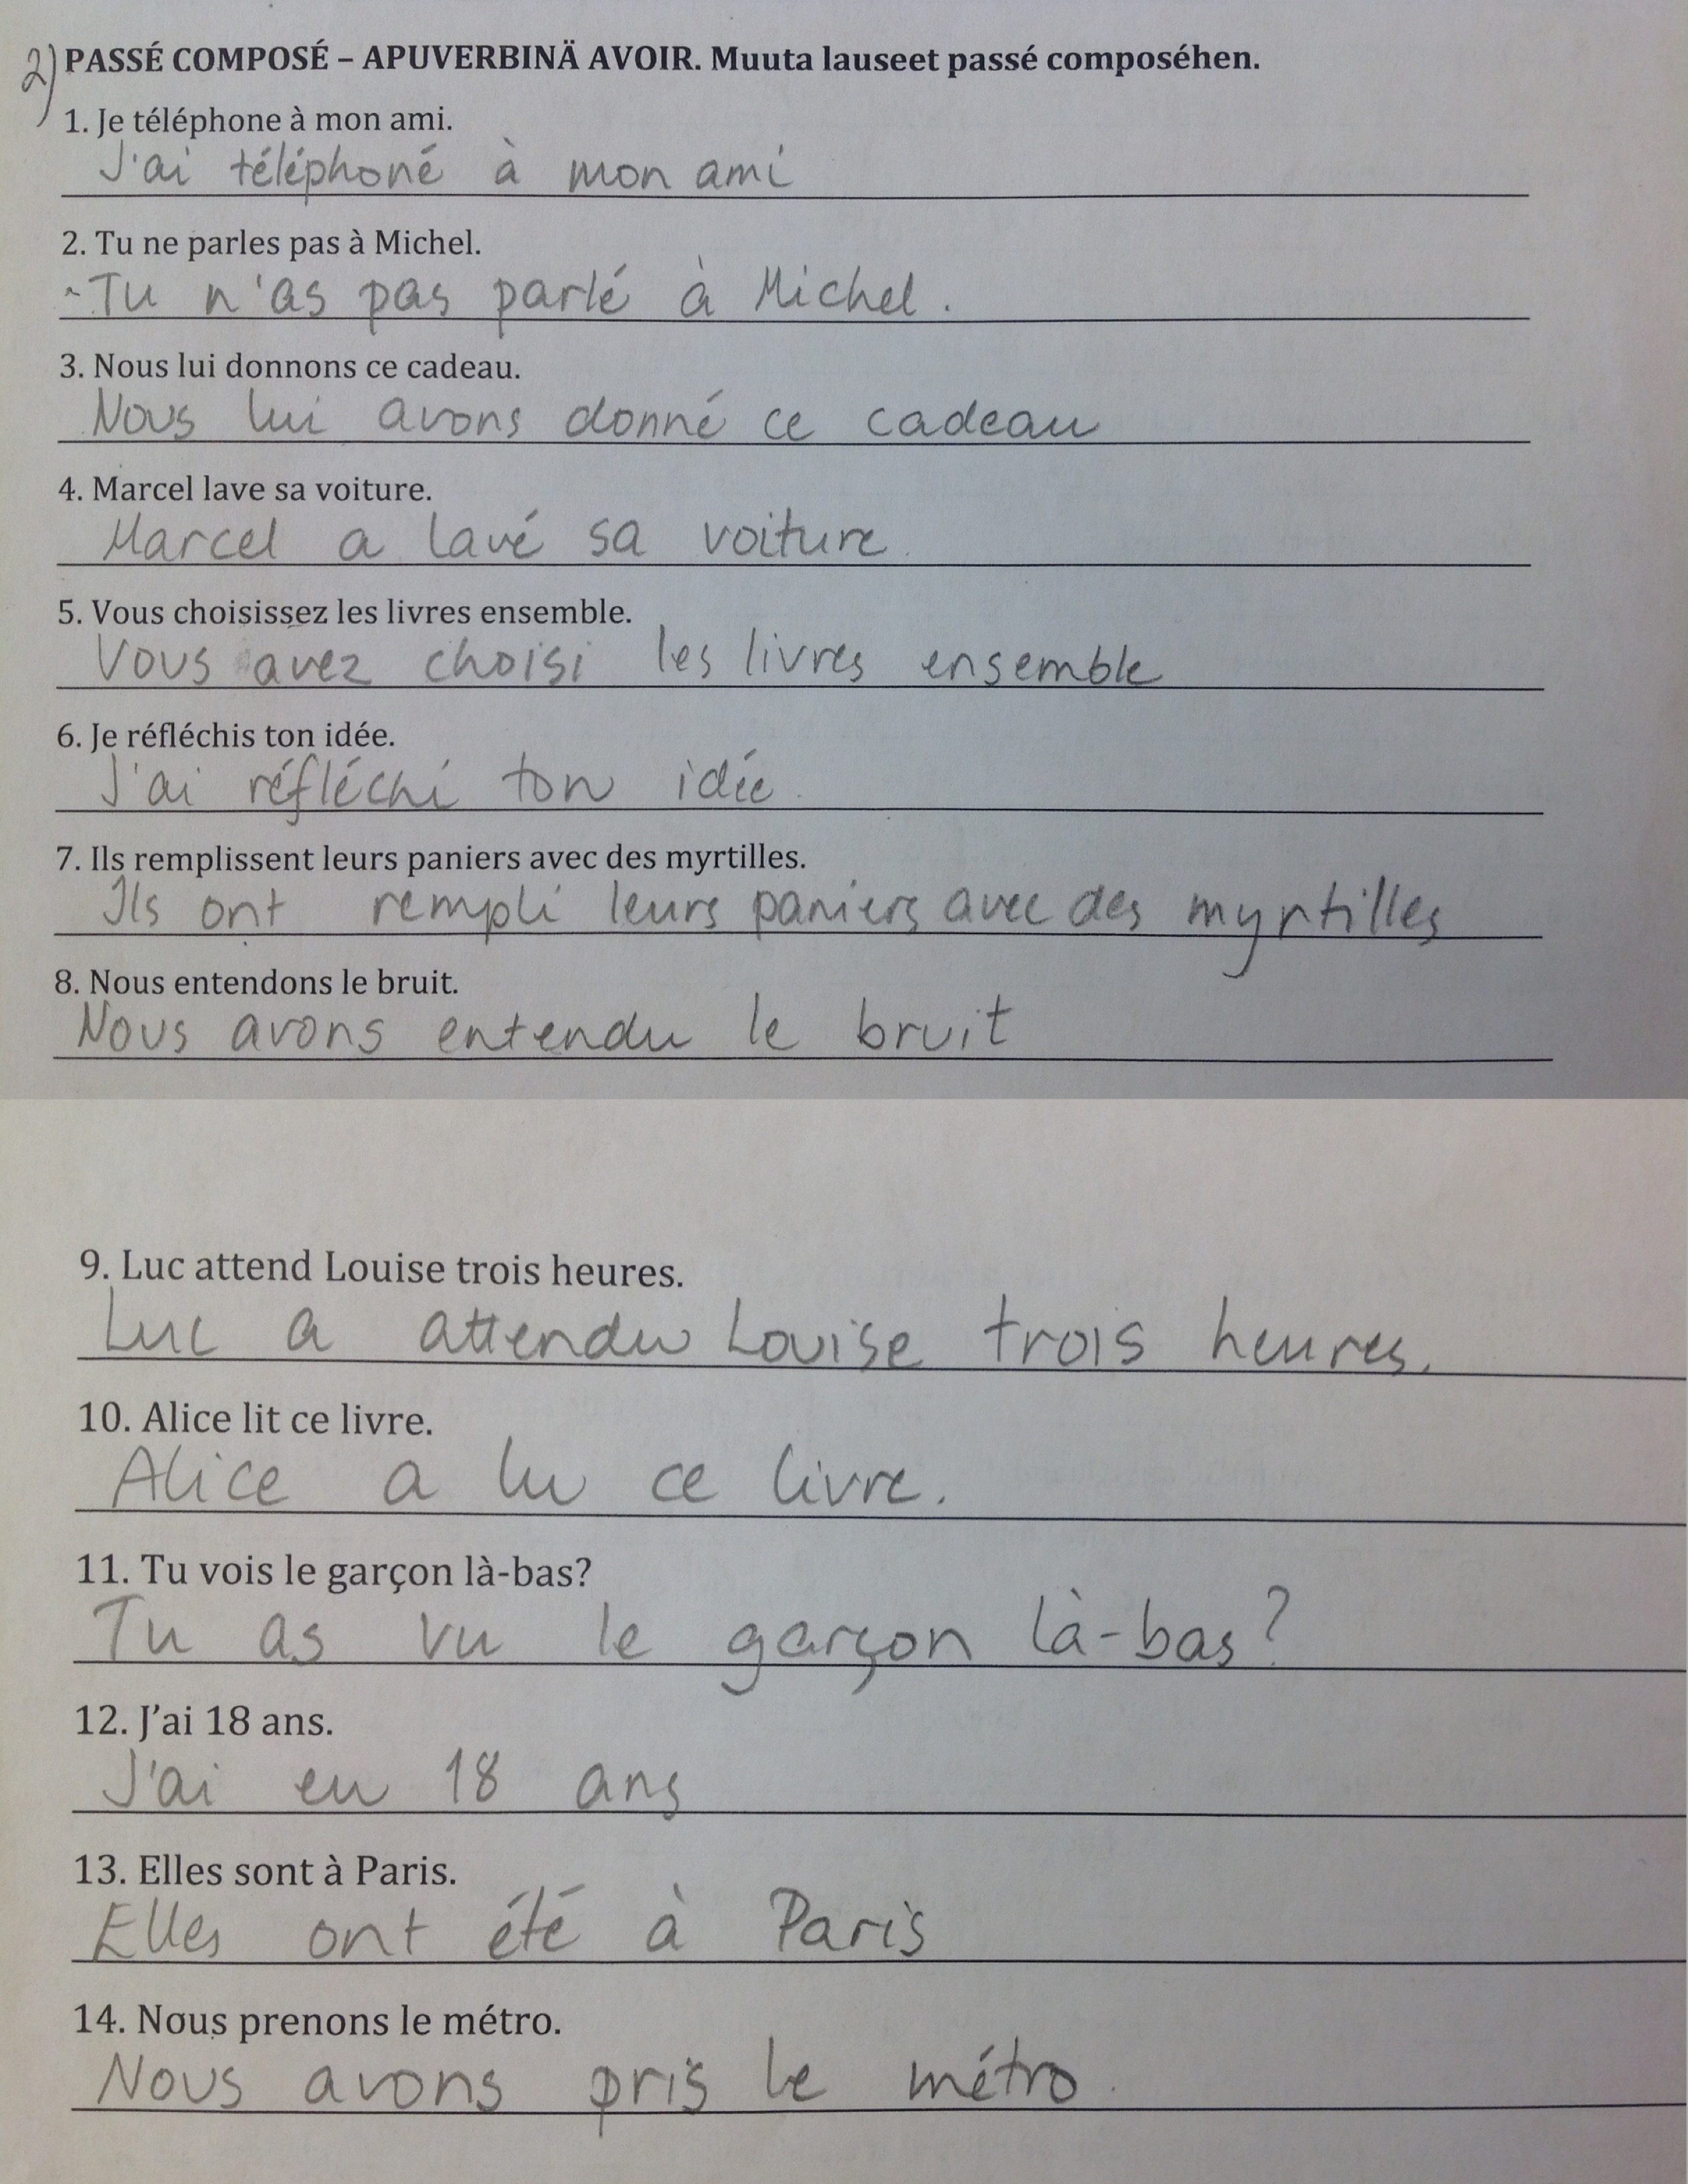 2) PASSÉ COMPOSÉ – APUVERBINÄ AVOIR. Muuta lauseet passé composéhen.
1. Je téléphone à mon ami.
J'ai téléphoné à mon ami
2. Tu ne parles pas à Michel.
Tu n'as pas parlé à Michel.
3. Nous lui donnons ce cadeau.
Nous lui avons donné ce cadeau
4. Marcel lave sa voiture.
Marcel a lavé sa voiture.
5. Vous choisissez les livres ensemble.
Vous avez choisi les livres ensemble
6. Je réfléchis ton idée.
J'ai réfléchi ton idée.
7. Ils remplissent leurs paniers avec des myrtilles.
Ils ont rempli leurs paniers avec des myrtilles
8. Nous entendons le bruit.
Nous avons entendu le bruit
9. Luc attend Louise trois heures.
Luc a attendu Louise trois heures.
10. Alice lit ce livre.
Alice a lu ce livre.
11. Tu vois le garçon là-bas?
Tu as vu le garçon là-bas?
12. J'ai 18 ans.
J'ai eu 18 ans
13. Elles sont à Paris.
Elles ont été à Paris
14. Nous prenons le métro.
Nous avons pris le métro.